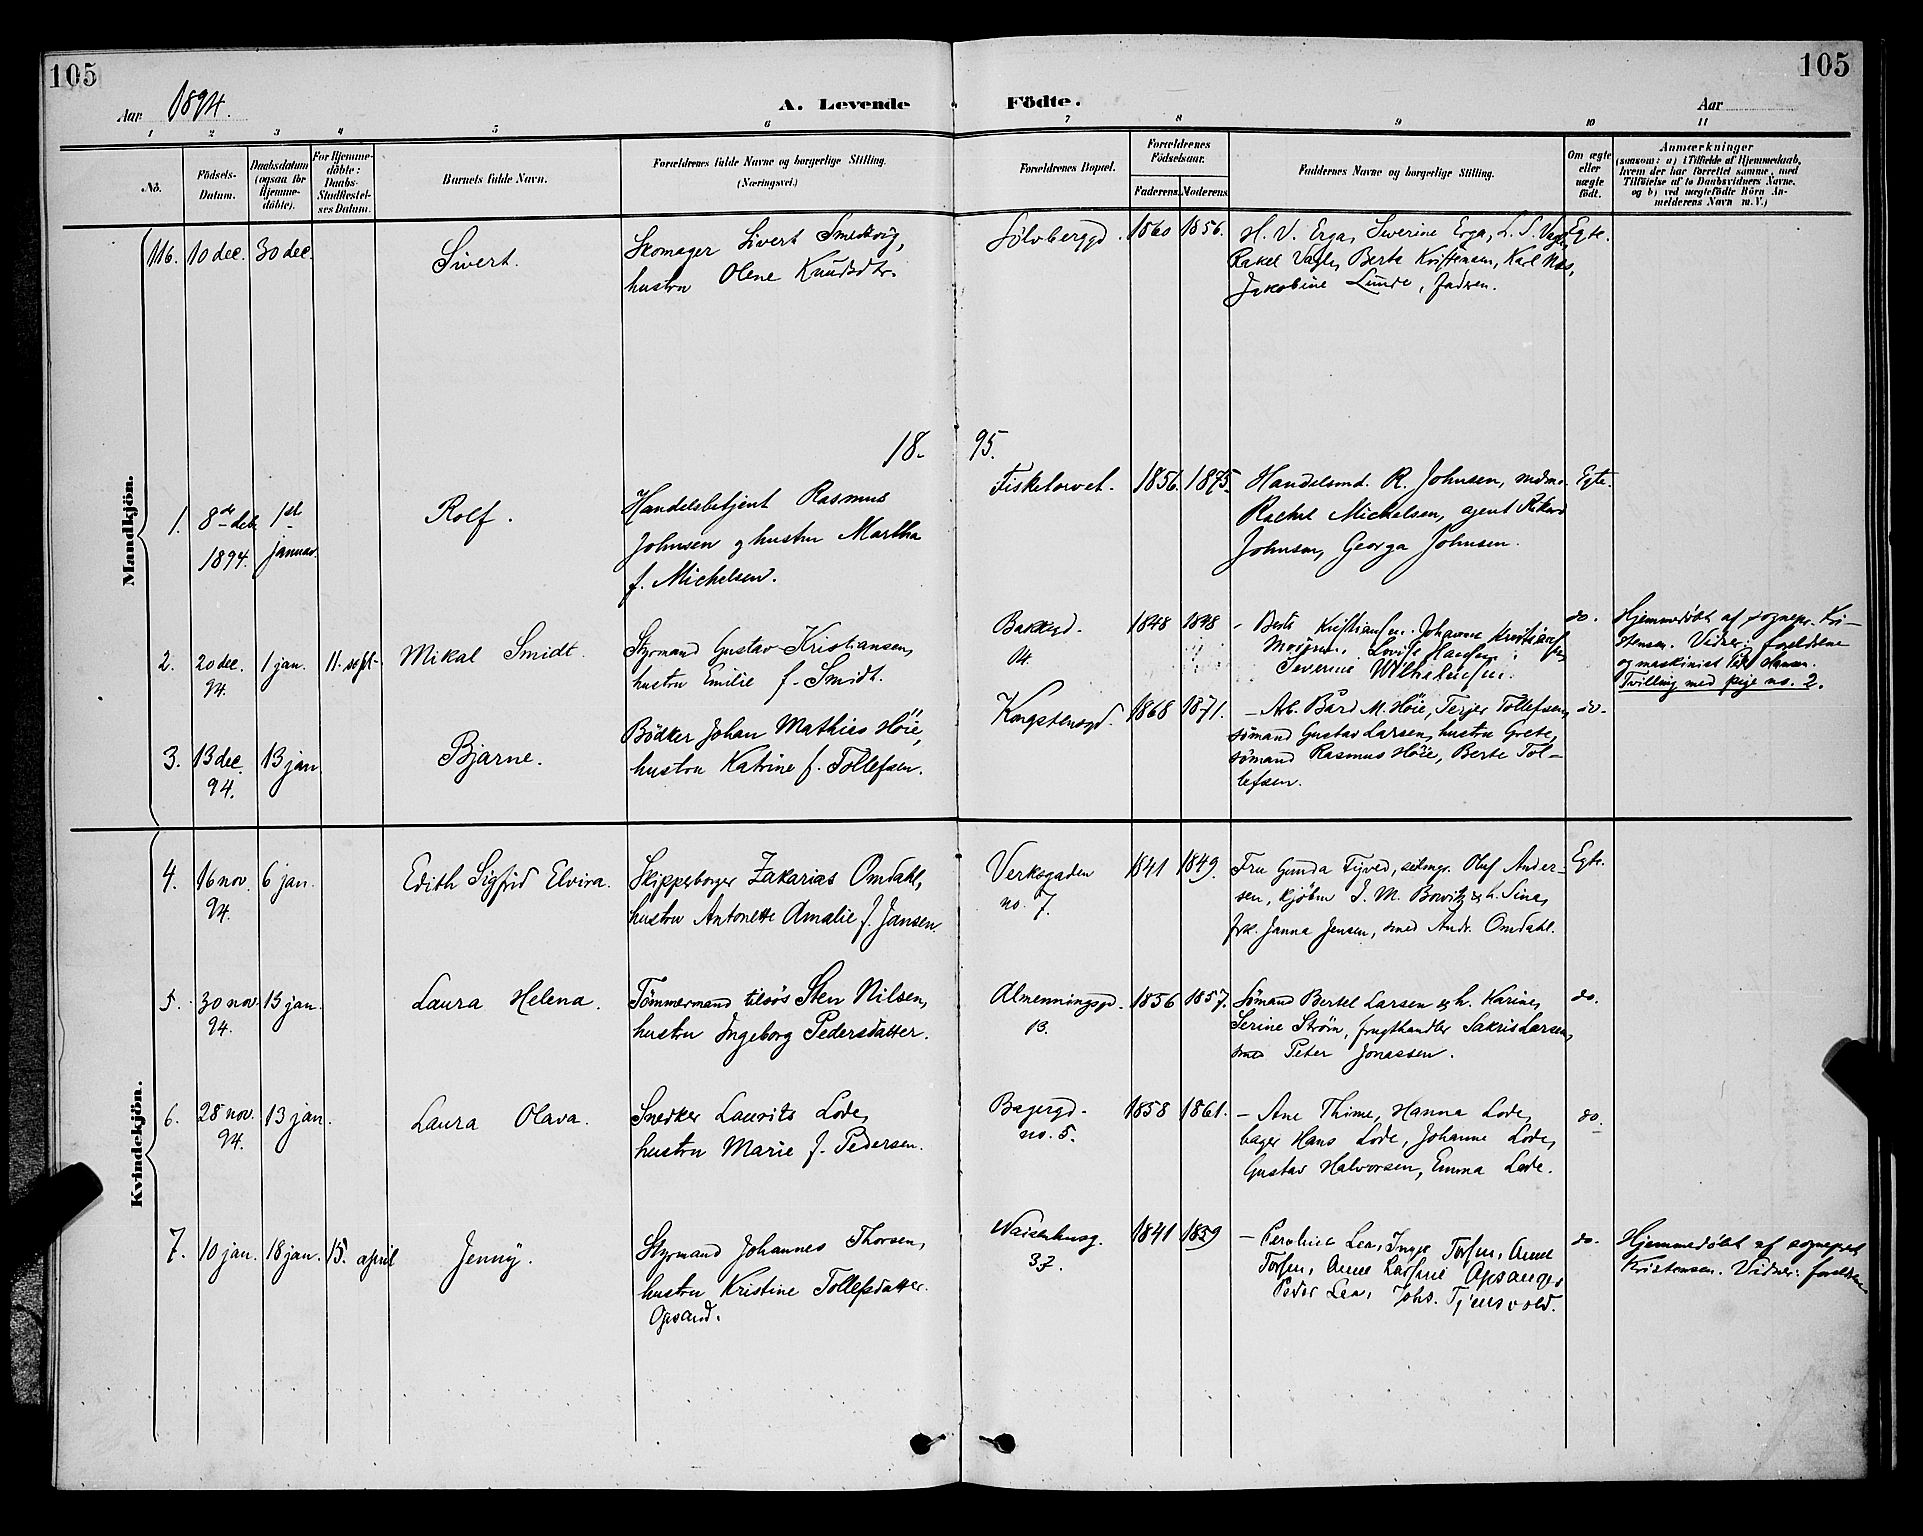 105
105
Aar 1894.
A. Levende Födte.
Aar
1 2 3 4 5 6 7 8 9 10 11
No.
Födsels-
Datum.
Daabsdatum
(ogsaa for
Hjemme-
döbte).
For Hjemme-
döbte:
Daabs-
Stadfæstel-
ses Datum.
Barnets fulde Navn.
Forældrenes fulde Navne og borgerlige Stilling.
(Næringsvei.)
Forældrenes Bopæl.
Forældrenes
Födselsaar.
Faderens.
Moderens.
Faddernes Navne og borgerlige Stilling.
Om ægte
eller
uægte
födt.
Anmærkninger
(saasom: a) i Tilfælde af Hjemmedaab,
hvem der har forrettet samme, med
Tilföielse af to Daabsvidners Navne,
og b) ved uægtefödte Börn An-
melderens Navn m. V.)
Mandkjön.
116. 10 dec. 30 dec. Sivert.
Skomager Sivert Smedvig,
hustru Olene Knudsdtr.
Sölvberggd. 1860 1856.
H. V. Erga, Severine Erga, L. S. Vagle,
Rakel Vagle, Berte Kristensen, Karl Næs,
Jakobine Lunde, faderen.
Egte.
18- 95.
1. 8de deb. 1st
1894. januar
Rolf.
Handelsbetjent Rasmus
Johnsen og hustru Martha
f. Michelsen.
Fisketorvet. 1856. 1875.
Handelsmd. R. Johnsen, mdm.
Rachel Michelsen, agent
Johnsen, Georga Johnsen.
Egte.
2. 20 dec. 1 jan. 11. sept.
94.
Mikal Smidt.
Styrmand Gustav Kristiansen,
hustru Emilie f. Smidt.
Bakkegd.
14.
1848
- Berte Kristiansen. Johanne Kristiansen,
Moderen, Lovise Hansen,
Severine Wilhelmsen.
do.
Hjemmedöbt af sognepr. Kri-
stensen. Vidner: forældrene
og maskinist Peder Hansen.
Tvilling med pige no. 2.
3. 13 dec. 13 jan
94.
Bjarne.
Bödker Johan Mathias Höie,
hustru Katrine f. Tollefsen.
Kongstensgd. 1868 1871.
- Arb. Bård M. Höie, Terjer Tollefsen,
sömand Gustav Larsen, hustru Grete,
sömand Rasmus Höie, Berte Tol-
lefsen.
do.
Kvindekjön.
4. 16 nov. 6 jan.
94.
Edith Sigfrid Elvira.
Skipperborger Zakarias Omdahl,
hustru Antonette Amalie f. Jansen.
Verksgaden
no. 7.
1841 1849.
Fru Gunda Tjgved, Oluf Ander-
sen, kjöbm J. M. Bowitz & h. Sina,
frk. Janna Jensen, smed Andr. Omdahl.
Egte.
5. 30 nov. 13 jan.
94.
Laura Helena.
Tömmermand tilsös Sten Nilsen,
hustru Ingeborg Pedersdatter.
Almenningsgd.
13.
1856 1857.
Sömand Bertel Larsen & h. Karine,
Serine Ström, frugthandler Sakris Larsen,
smed Peter Jonassen.
do.
6. 28 nov. 13 jan.
94.
Laura Olava.
Snedker Laurits Lode,
hustru Marie f. Pedersen.
Bagergd.
no. 5.
1858 1861.
- Ane Thime, Hanna Lode,
bager Hans Lode, Johanne Lode,
Gustav Halvorsen, Emma Lode.
do.
7. 10 jan. 18 jan. 15. april
Jenny.
Styrmand Johannes Thorsen,
hustru Kristine Tollefsdatter
Opsand.
Waisenhusg.
37.
1841 1859
- Peroline Lea, Inga Torsen, Anne
Torsen, Anne Opsanger
Peder Lea, Johs. Tjensvold.
do.
Hjemmedöbt af sognepræst
Kristensen. Vidner: forældrene